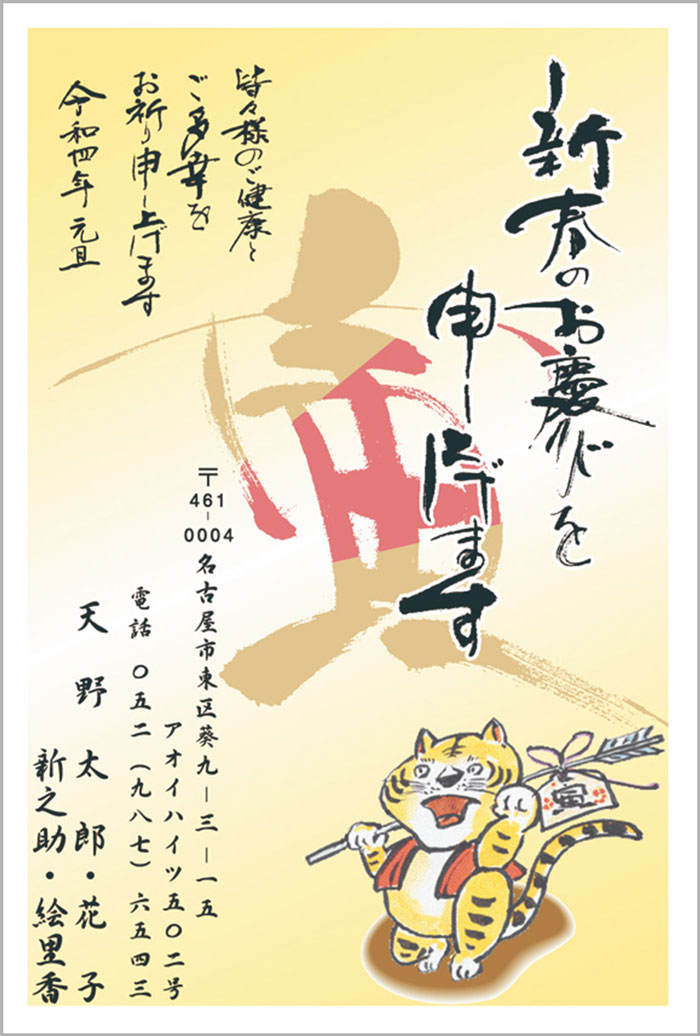 新春のお慶びを
申し上げます
皆々様のご健康と
ご多幸を
お祈り申し上げます
令和四年 元旦
〒461-0004 名古屋市東区葵九-三-一五
アオイハイツ五〇二号
電話 〇五二(九八七)六五四三
天野太郎・花子
新之助・絵里香
寅
寅